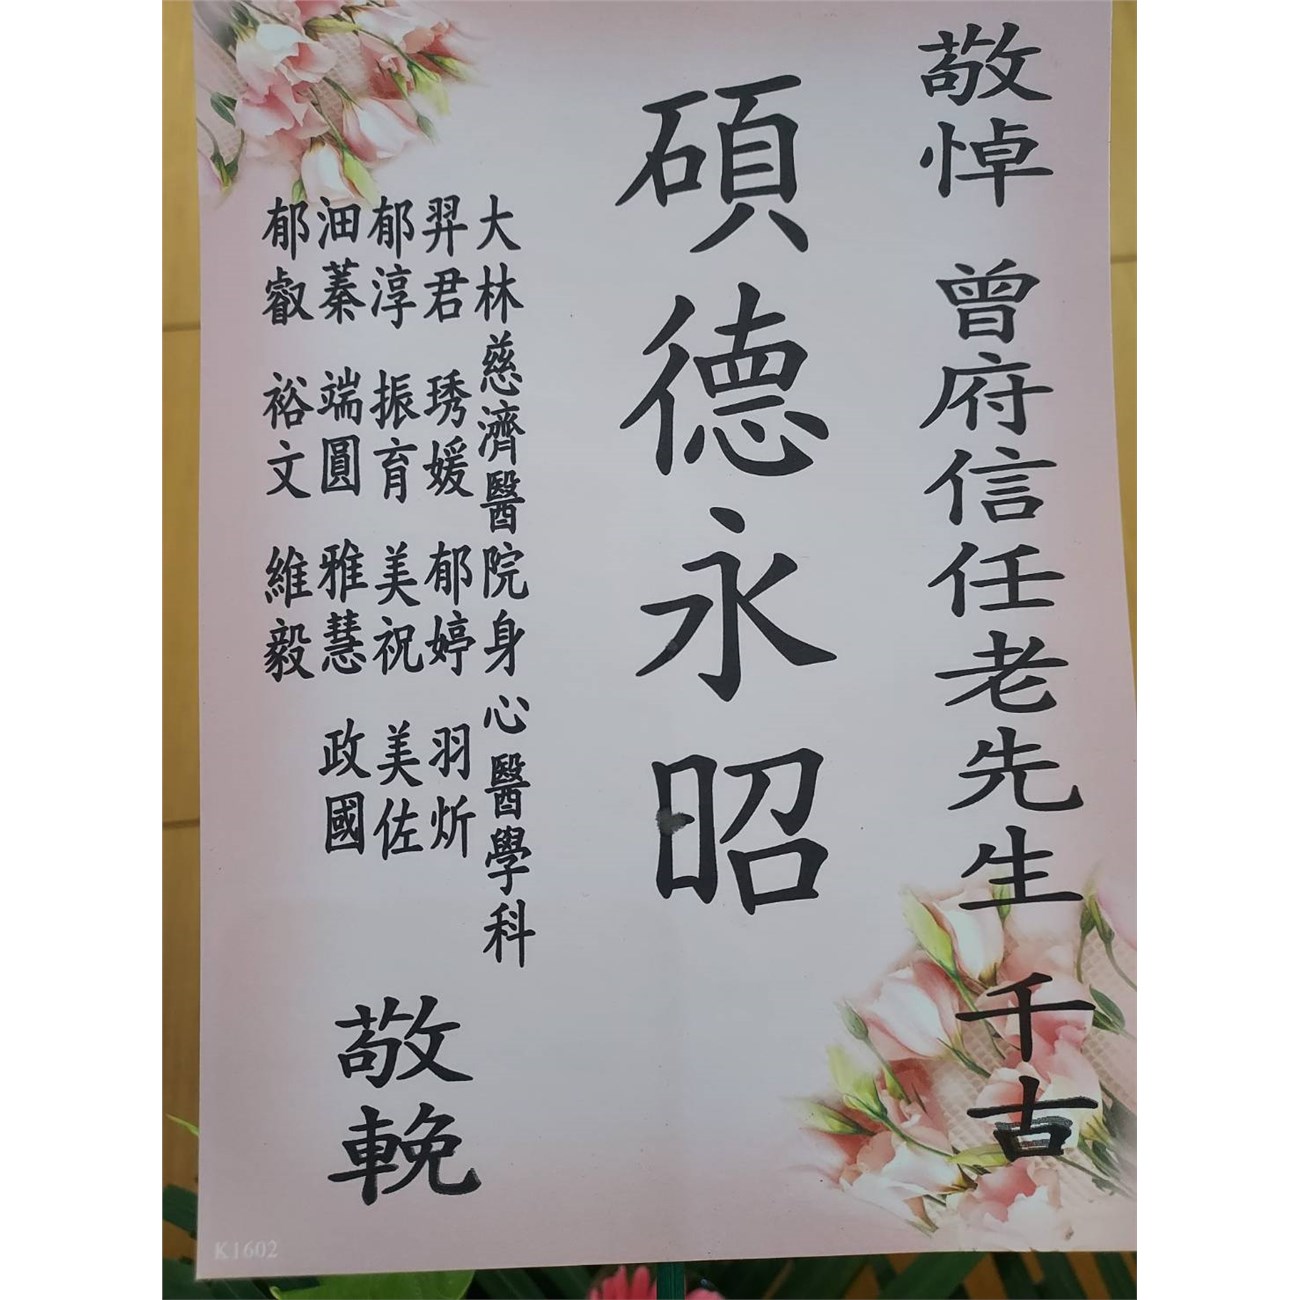 敬悼 曾府信任老先生 千古
碩德永昭
大林慈濟醫院身心醫學科
羿君 琇媛 郁婷 羽炘
郁淳 振育 美祝 美佐
沺蓁 端圓 雅慧 政國
郁叡 裕文 維毅
敬輓
K1602